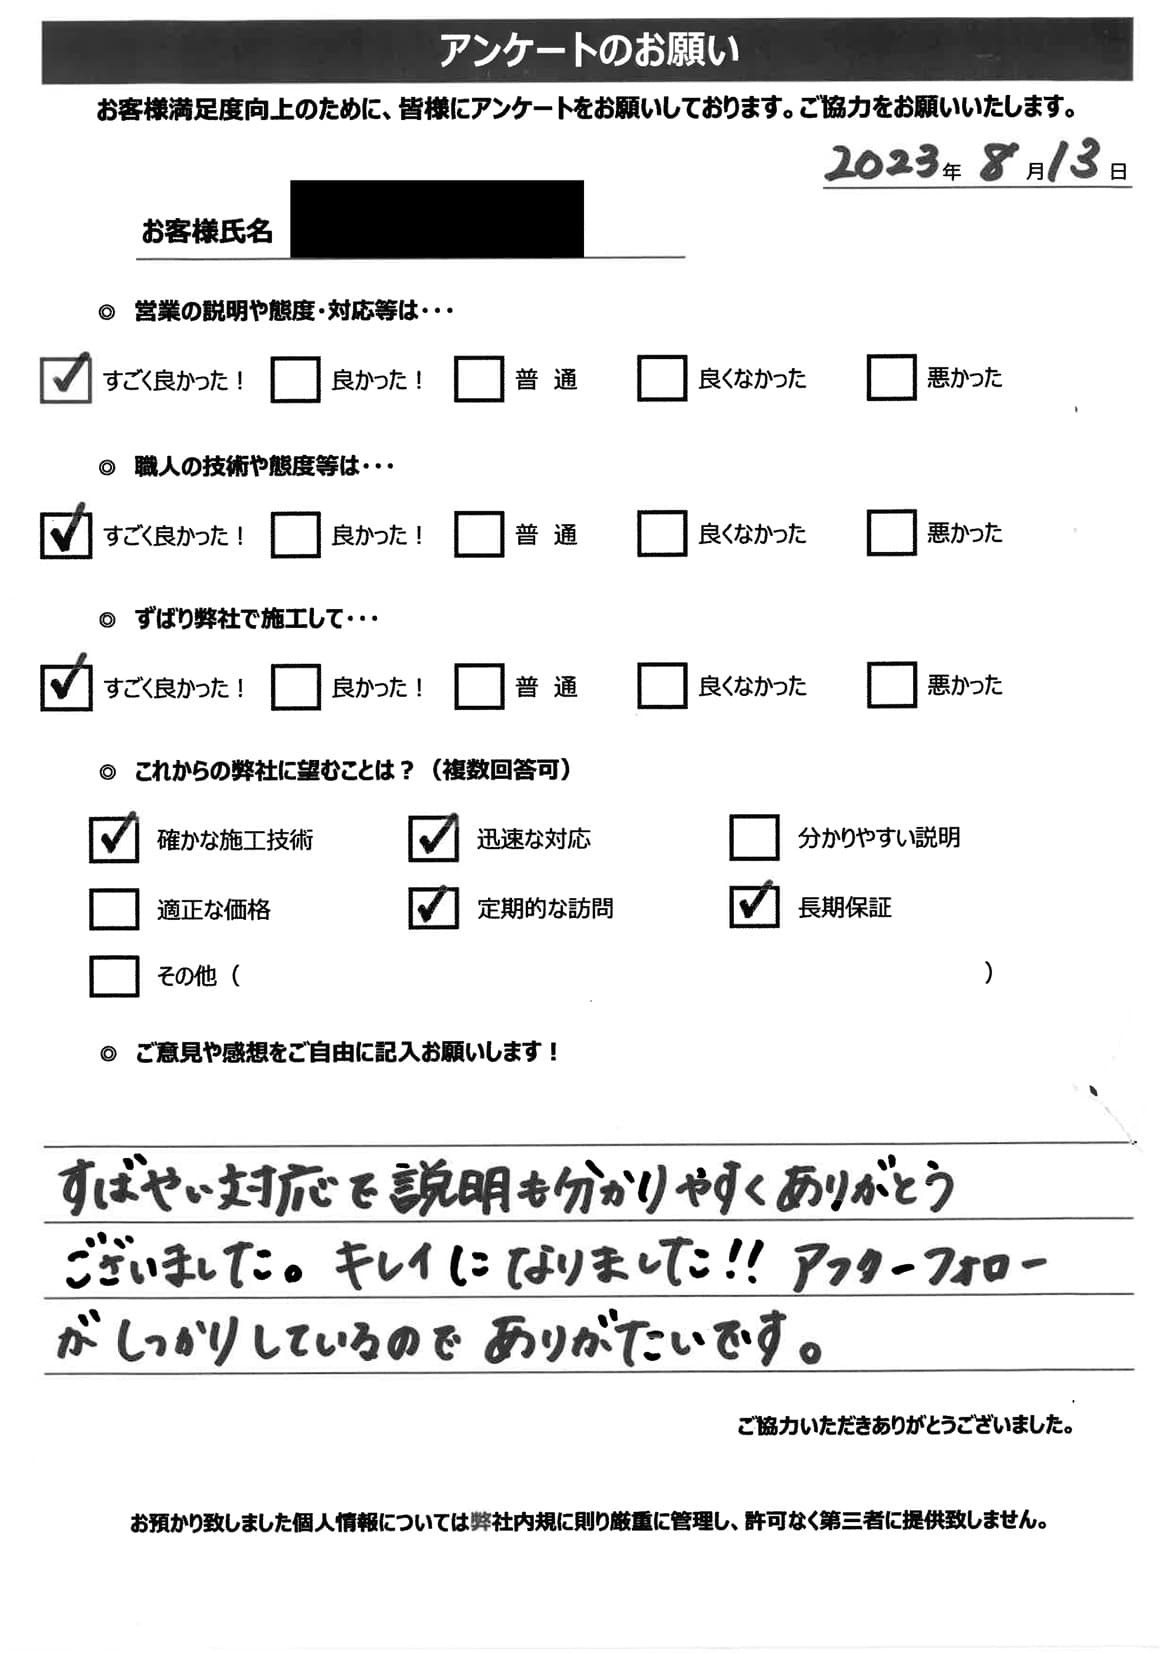 アンケートのお願い
お客様満足度向上のために、皆様にアンケートをお願いしております。ご協力をお願いいたします。
2023年 8月13日
お客様氏名
◎ 営業の説明や態度・対応等は・・・
すごく良かった！ 良かった！ 普 通 良くなかった 悪かった
◎ 職人の技術や態度等は・・・
すごく良かった！ 良かった！ 普 通 良くなかった 悪かった
◎ ずばり弊社で施工して・・・
すごく良かった！ 良かった！ 普 通 良くなかった 悪かった
◎ これからの弊社に望むことは？（複数回答可）
確かな施工技術 迅速な対応 分かりやすい説明
適正な価格 定期的な訪問 長期保証
その他（ ）
◎ ご意見や感想をご自由に記入お願いします！
すばやい対応で説明も分かりやすくありがとう
ございました。キレイになりました!! アフターフォロー
がしっかりしているのでありがたいです。
ご協力いただきありがとうございました。
お預かり致しました個人情報については弊社内規に則り厳重に管理し、許可なく第三者に提供致しません。